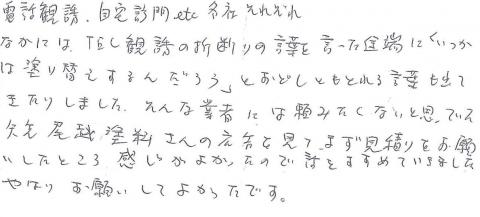 電話観誘、自宅訪問、etc 各社 それぞれ
なかには、TEL観誘の折断りの言葉を言った途端に「いつか
は塗り替えするんだろう」とおどしともとれる言葉も出て
きたりしました。そんな業者には頼みたくないと思っていて
屋越塗料さんの広告を見て、まず見積りをお願
いしたところ 感じがよかったので話をすすめていきました
やはり お願いしてよかったです。